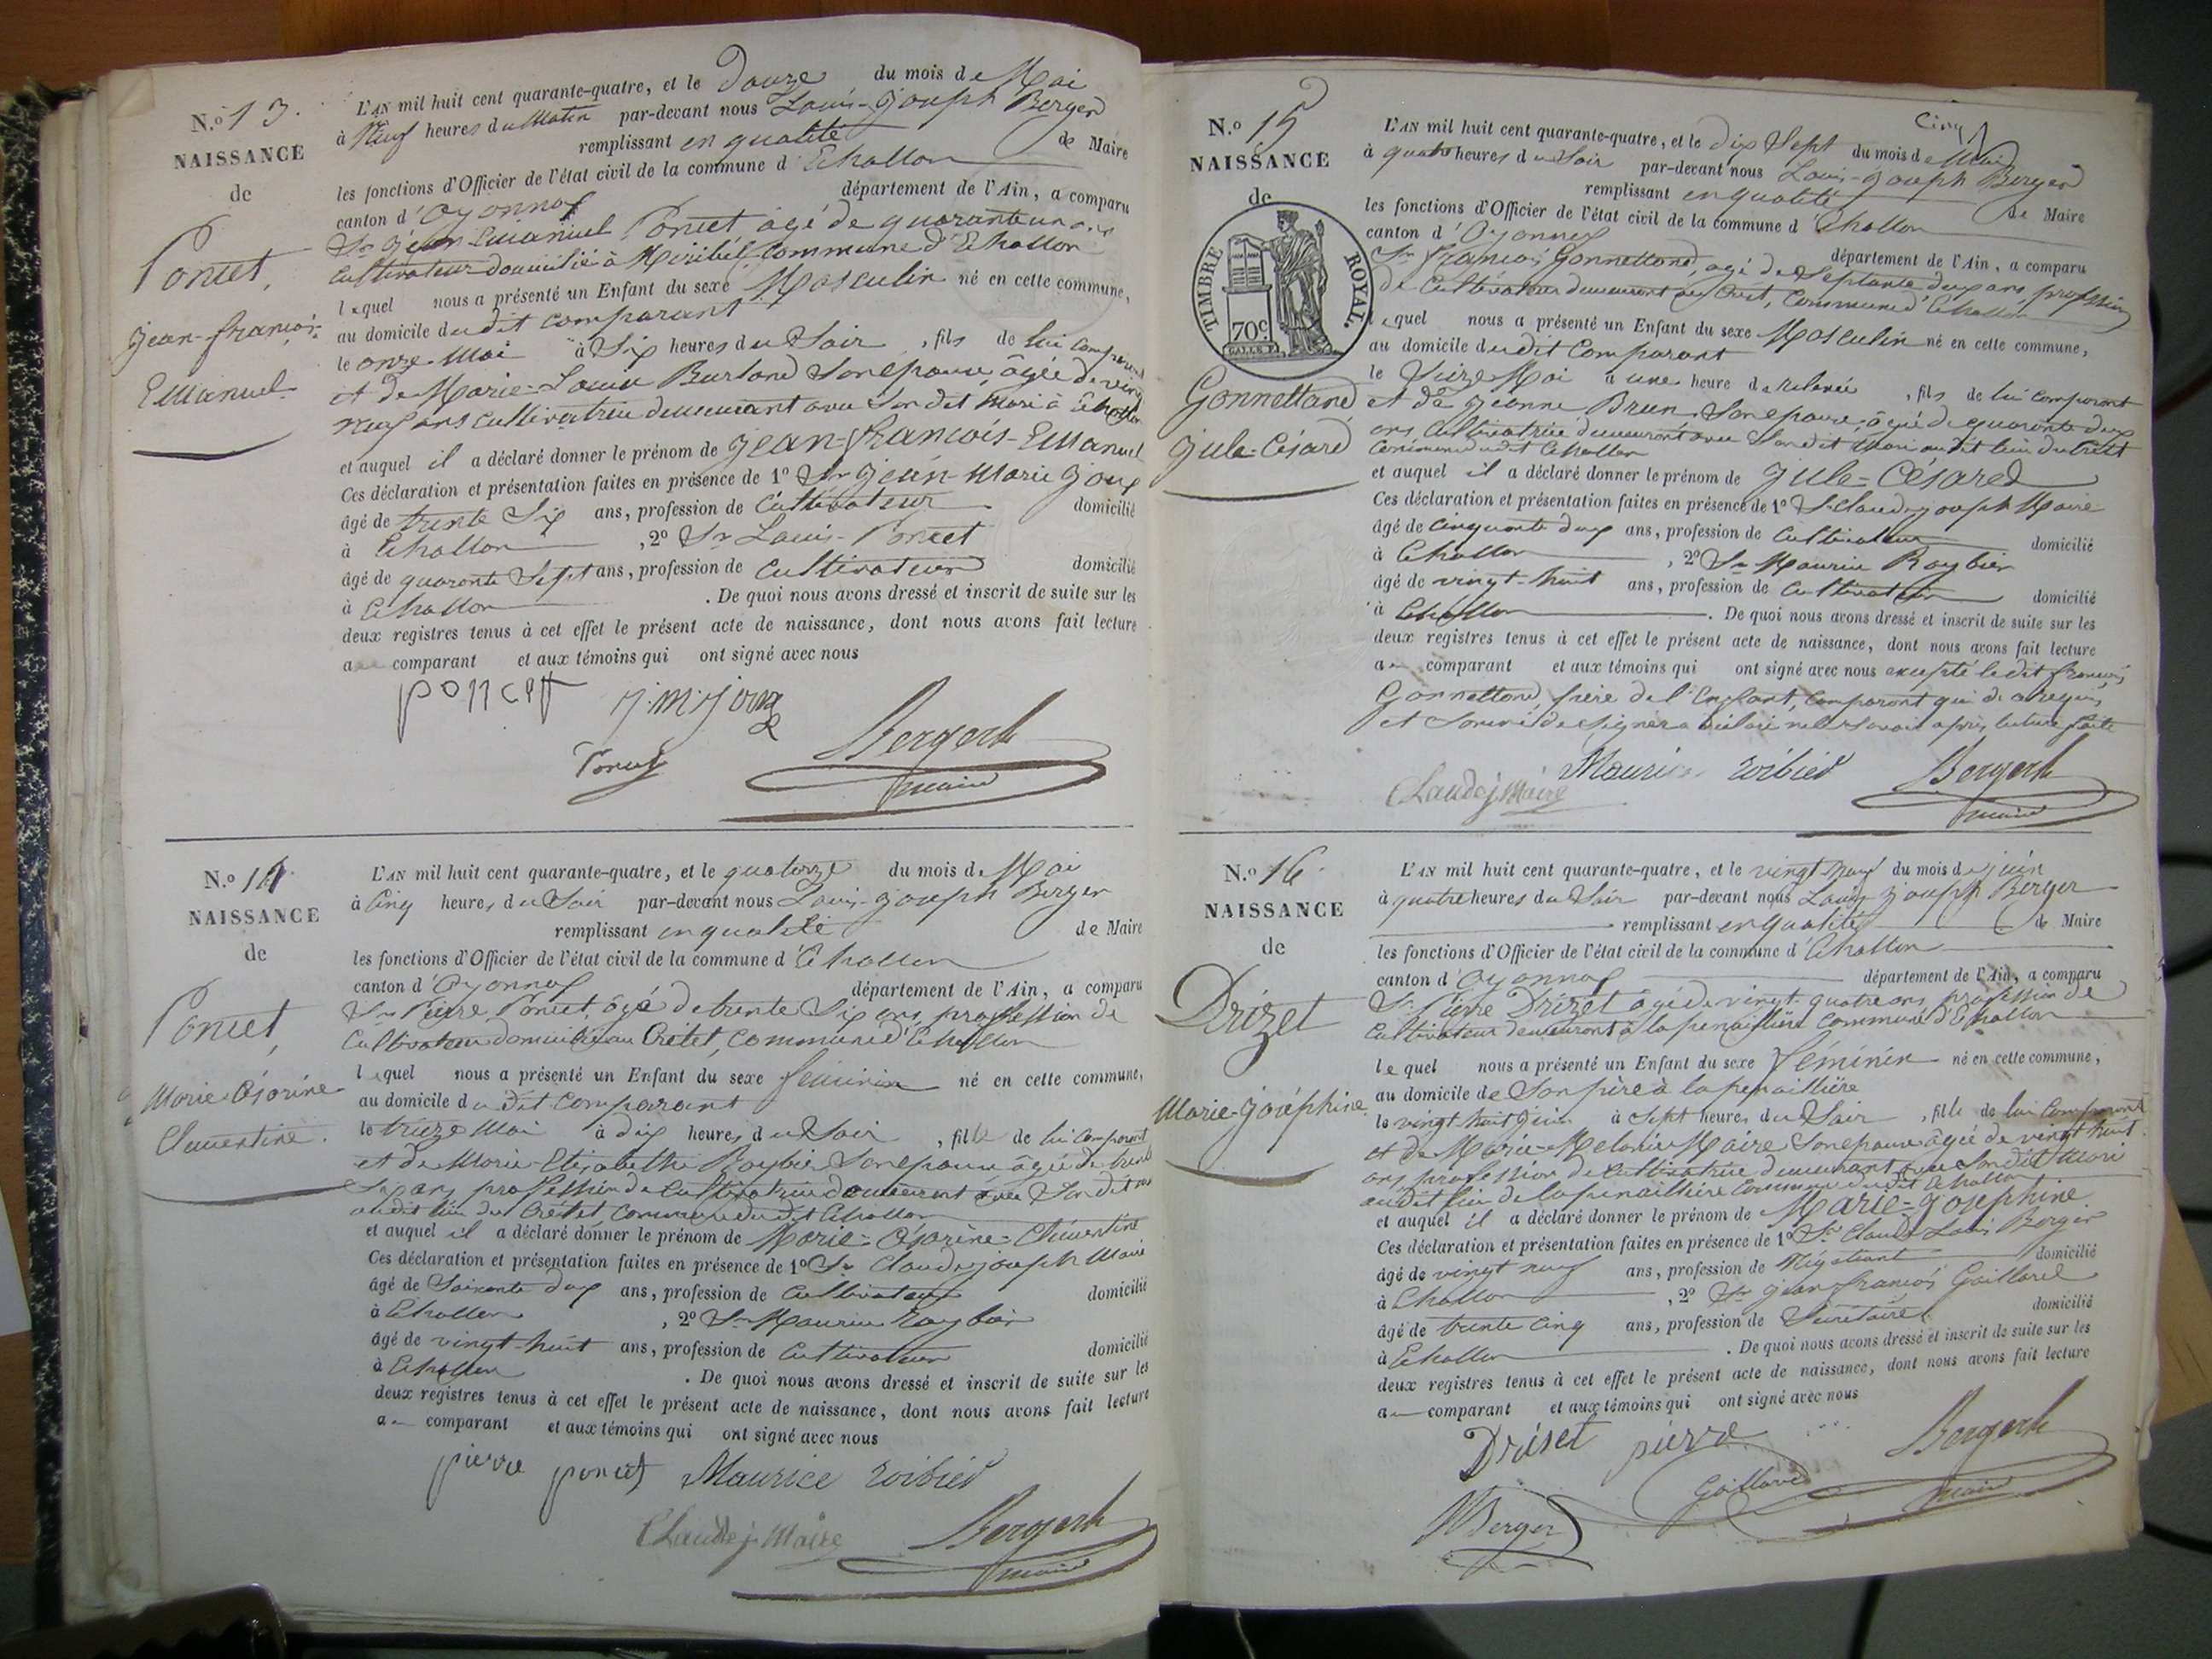 N.º 13.
NAISSANCE
de
Poncet,
Jean-françois-
Emanuel
L'AN mil huit cent quarante-quatre, et le douze du mois de Mai
à Neuf heures du Matin par-devant nous Louis-Joseph Berger
remplissant en qualité de Maire
les fonctions d'Officier de l'état civil de la commune d'Echallon
canton d'Oyonnax département de l'Ain, a comparu
Sr Jean Emanuel Poncet âgé de quarante un ans
Cultivateur domicilié à Miribel, Commune d'Echallon
lequel nous a présenté un Enfant du sexe Masculin né en cette commune,
au domicile dudit comparant
le onze Mai à Six heures du Soir, fils de lui comparant
et de Marie-Louise Burland Son épouse, âgée de vingt
neuf ans cultivatrice demeurant avec Son dit Mari à Echallon
et auquel il a déclaré donner le prénom de Jean-François-Emanuel
Ces déclaration et présentation faites en présence de 1º Sr Jean-Marie Joux
âgé de trente Six ans, profession de Cultivateur domicilié
à Echallon, 2º Sr Louis-Poncet
âgé de quarante Sept ans, profession de Cultivateur domicilié
à Echallon. De quoi nous avons dressé et inscrit de suite sur les
deux registres tenus à cet effet le présent acte de naissance, dont nous avons fait lecture
au comparant et aux témoins qui ont signé avec nous
poncet j.m. joux
Poncet Bergerh
maire
N.º 14
NAISSANCE
de
Poncet,
Marie-Césarine
Clementine.
L'AN mil huit cent quarante-quatre, et le quatorze du mois de Mai
à Cinq heures du Soir par-devant nous Louis-Joseph Berger
remplissant en qualité de Maire
les fonctions d'Officier de l'état civil de la commune d'Echallon
canton d'Oyonnax département de l'Ain, a comparu
Sr Pierre Poncet, âgé de trente Six ans, profession de
Cultivateur domicilié au Crétet, Commune d'Echallon
lequel nous a présenté un Enfant du sexe féminin né en cette commune,
au domicile du dit comparant
le treize Mai à dix heures du Soir, fille de lui comparant
et de Marie-Elisabeth Roybier Son épouse âgée de trente
Six ans, profession de Cultivatrice demeurant avec Son dit mari
au dit lieu du Crétet, Commune dudit Echallon
et auquel il a déclaré donner le prénom de Marie-Césarine-Clémentine
Ces déclaration et présentation faites en présence de 1º Sr Claude-Joseph Maire
âgé de Soixante deux ans, profession de Cultivateur domicilié
à Echallon, 2º Sr Maurice Roybier
âgé de vingt-huit ans, profession de Cultivateur domicilié
à Echallon. De quoi nous avons dressé et inscrit de suite sur les
deux registres tenus à cet effet le présent acte de naissance, dont nous avons fait lecture
au comparant et aux témoins qui ont signé avec nous
pierre poncet Maurice Roibied
Claude j. Maire Bergerh
maire
Cinq
N.º 15
NAISSANCE
de
TIMBRE ROYAL.
70c.
Gonnettand
Jule-Césard
L'AN mil huit cent quarante-quatre, et le dix Sept du mois de Mai
à quatre heures du Soir par-devant nous Louis-Joseph Berger
remplissant en qualité de Maire
les fonctions d'Officier de l'état civil de la commune d'Echallon
canton d'Oyonnax département de l'Ain, a comparu
Sr François Gonnettand, âgé de Septante deux ans, profession
de Cultivateur demeurant au Crêt, Commune d'Echallon
lequel nous a présenté un Enfant du sexe Masculin né en cette commune,
au domicile dudit Comparant
le Seize Mai à une heure de relevée, fils de lui comparant
et de Jeanne Brun Son épouse, âgée de quarante deux
ans Cultivatrice demeurant avec Son dit Mari au dit lieu du Crêt
Commune dudit Echallon
et auquel il a déclaré donner le prénom de Jule-Césared
Ces déclaration et présentation faites en présence de 1º Sr Claude-Joseph Maire
âgé de Cinquante deux ans, profession de Cultivateur domicilié
à Echallon, 2º Sr Maurice Roybier
âgé de vingt-huit ans, profession de Cultivateur domicilié
à Echallon. De quoi nous avons dressé et inscrit de suite sur les
deux registres tenus à cet effet le présent acte de naissance, dont nous avons fait lecture
au comparant et aux témoins qui ont signé avec nous excepté le dit françois
Gonnettand, père de l'Enfant, Comparant qui de a requis
et Sommé de Signer a déclaré ne le Savoir après lecture faite
Maurice Roibied Bergerh
Claude j Maire maire
N.º 16
NAISSANCE
de
Drizet
Marie-Joséphine
L'AN mil huit cent quarante-quatre, et le vingt neuf du mois de Juin
à quatre heures du Soir par-devant nous Louis Joseph Berger
remplissant en qualité de Maire
les fonctions d'Officier de l'état civil de la commune d'Echallon
canton d'Oyonnax département de l'Ain, a comparu
Sr Pierre Drizet âgé de vingt-quatre ans profession de
Cultivateur demeurant à la penaillière Commune d'Echallon
lequel nous a présenté un Enfant du sexe féminin né en cette commune,
au domicile de Son père à la penaillière
le vingt huit Juin à Sept heures du Soir, fille de lui Comparant
et de Marie-Melanie Maire Son épouse âgée de vingt huit
ans profession de Cultivatrice demeurant avec Son dit Mari
au dit lieu de la penaillière Commune dudit Echallon
et auquel il a déclaré donner le prénom de Marie-Josephine
Ces déclaration et présentation faites en présence de 1º Sr Claude Louis Berger
âgé de vingt neuf ans, profession de Négotiant domicilié
à Echallon, 2º Sr Jean françois Gaillard
âgé de trente cinq ans, profession de Secrétaire domicilié
à Echallon. De quoi nous avons dressé et inscrit de suite sur les
deux registres tenus à cet effet le présent acte de naissance, dont nous avons fait lecture
au comparant et aux témoins qui ont signé avec nous
Driset pierre Bergerh
Gaillard maire
Berger